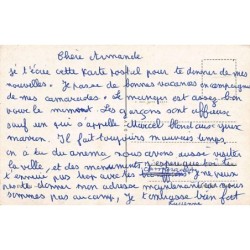 Chère Armande
Je t'écris cette Karte postal pour te donner de mes
nouvelles. Je passe de bonnes vacances en compagnie
de mes camarades. Le manger est assez bon
pour le moment. Les garçons sont affreux
sauf un qui s'appelle Marcel blond aux yeux
marron. Il fait toujours mauvais temps
on a eu du cinema, nous avons aussi visité
la ville, et des monuments j'espère que toi tu
t'ennuie pas bien avec les Je ne peux
pas te donner mon adresse maintenant car nous
sommes pas au camp, Je t'embrasse bien fort